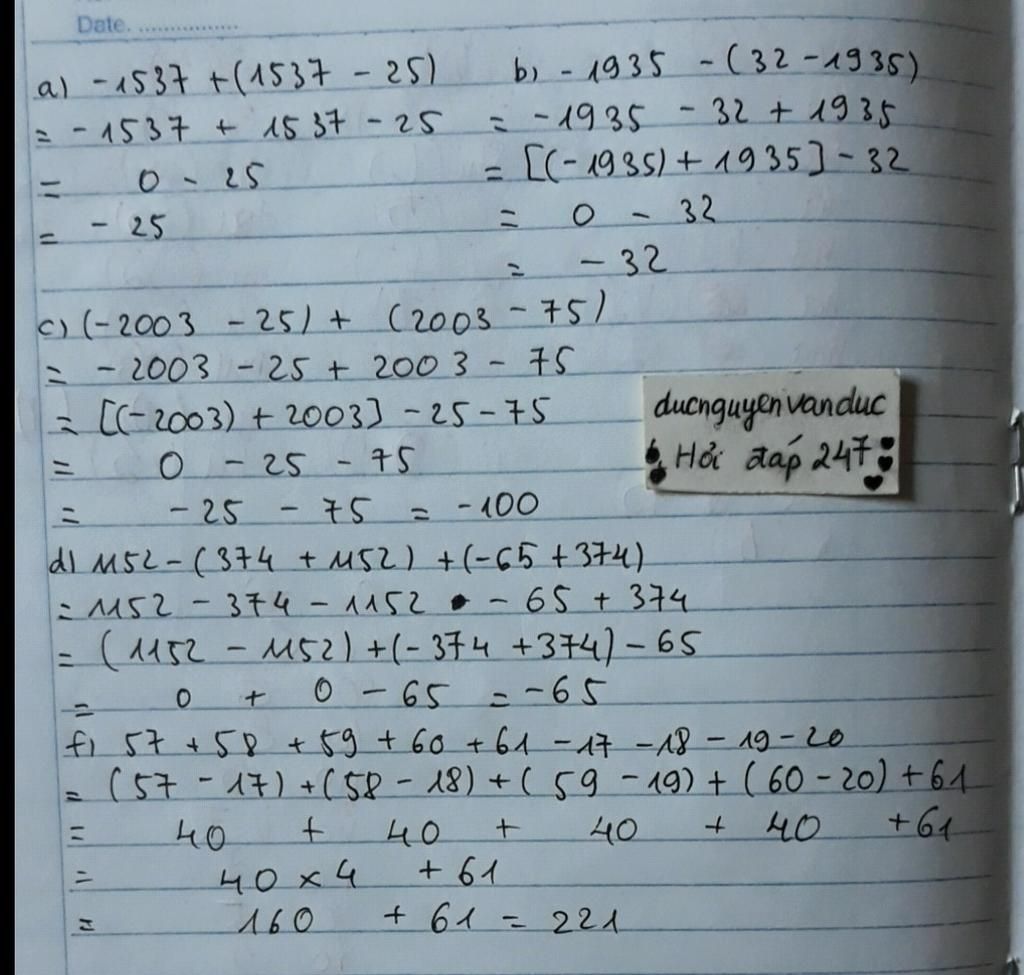 Date. ................
a) -1537 + (1537 - 25)
= -1537 + 1537 - 25
= 0 - 25
= - 25
b) - 1935 - (32 - 1935)
= -1935 - 32 + 1935
= [(-1935) + 1935] - 32
= 0 - 32
= - 32
c) (-2003 - 25) + (2003 - 75)
= - 2003 - 25 + 2003 - 75
= [(-2003) + 2003] - 25 - 75
= 0 - 25 - 75
= -25 - 75 = -100
ducnguyenvanduc
Hỏi đáp 247
d) 1152 - (374 + 1152) + (-65 + 374)
= 1152 - 374 - 1152 - 65 + 374
= (1152 - 1152) + (-374 + 374) - 65
= 0 + 0 - 65 = -65
f) 57 + 58 + 59 + 60 + 61 - 17 - 18 - 19 - 20
= (57 - 17) + (58 - 18) + (59 - 19) + (60 - 20) + 61
= 40 + 40 + 40 + 40 + 61
= 40 x 4 + 61
= 160 + 61 = 221